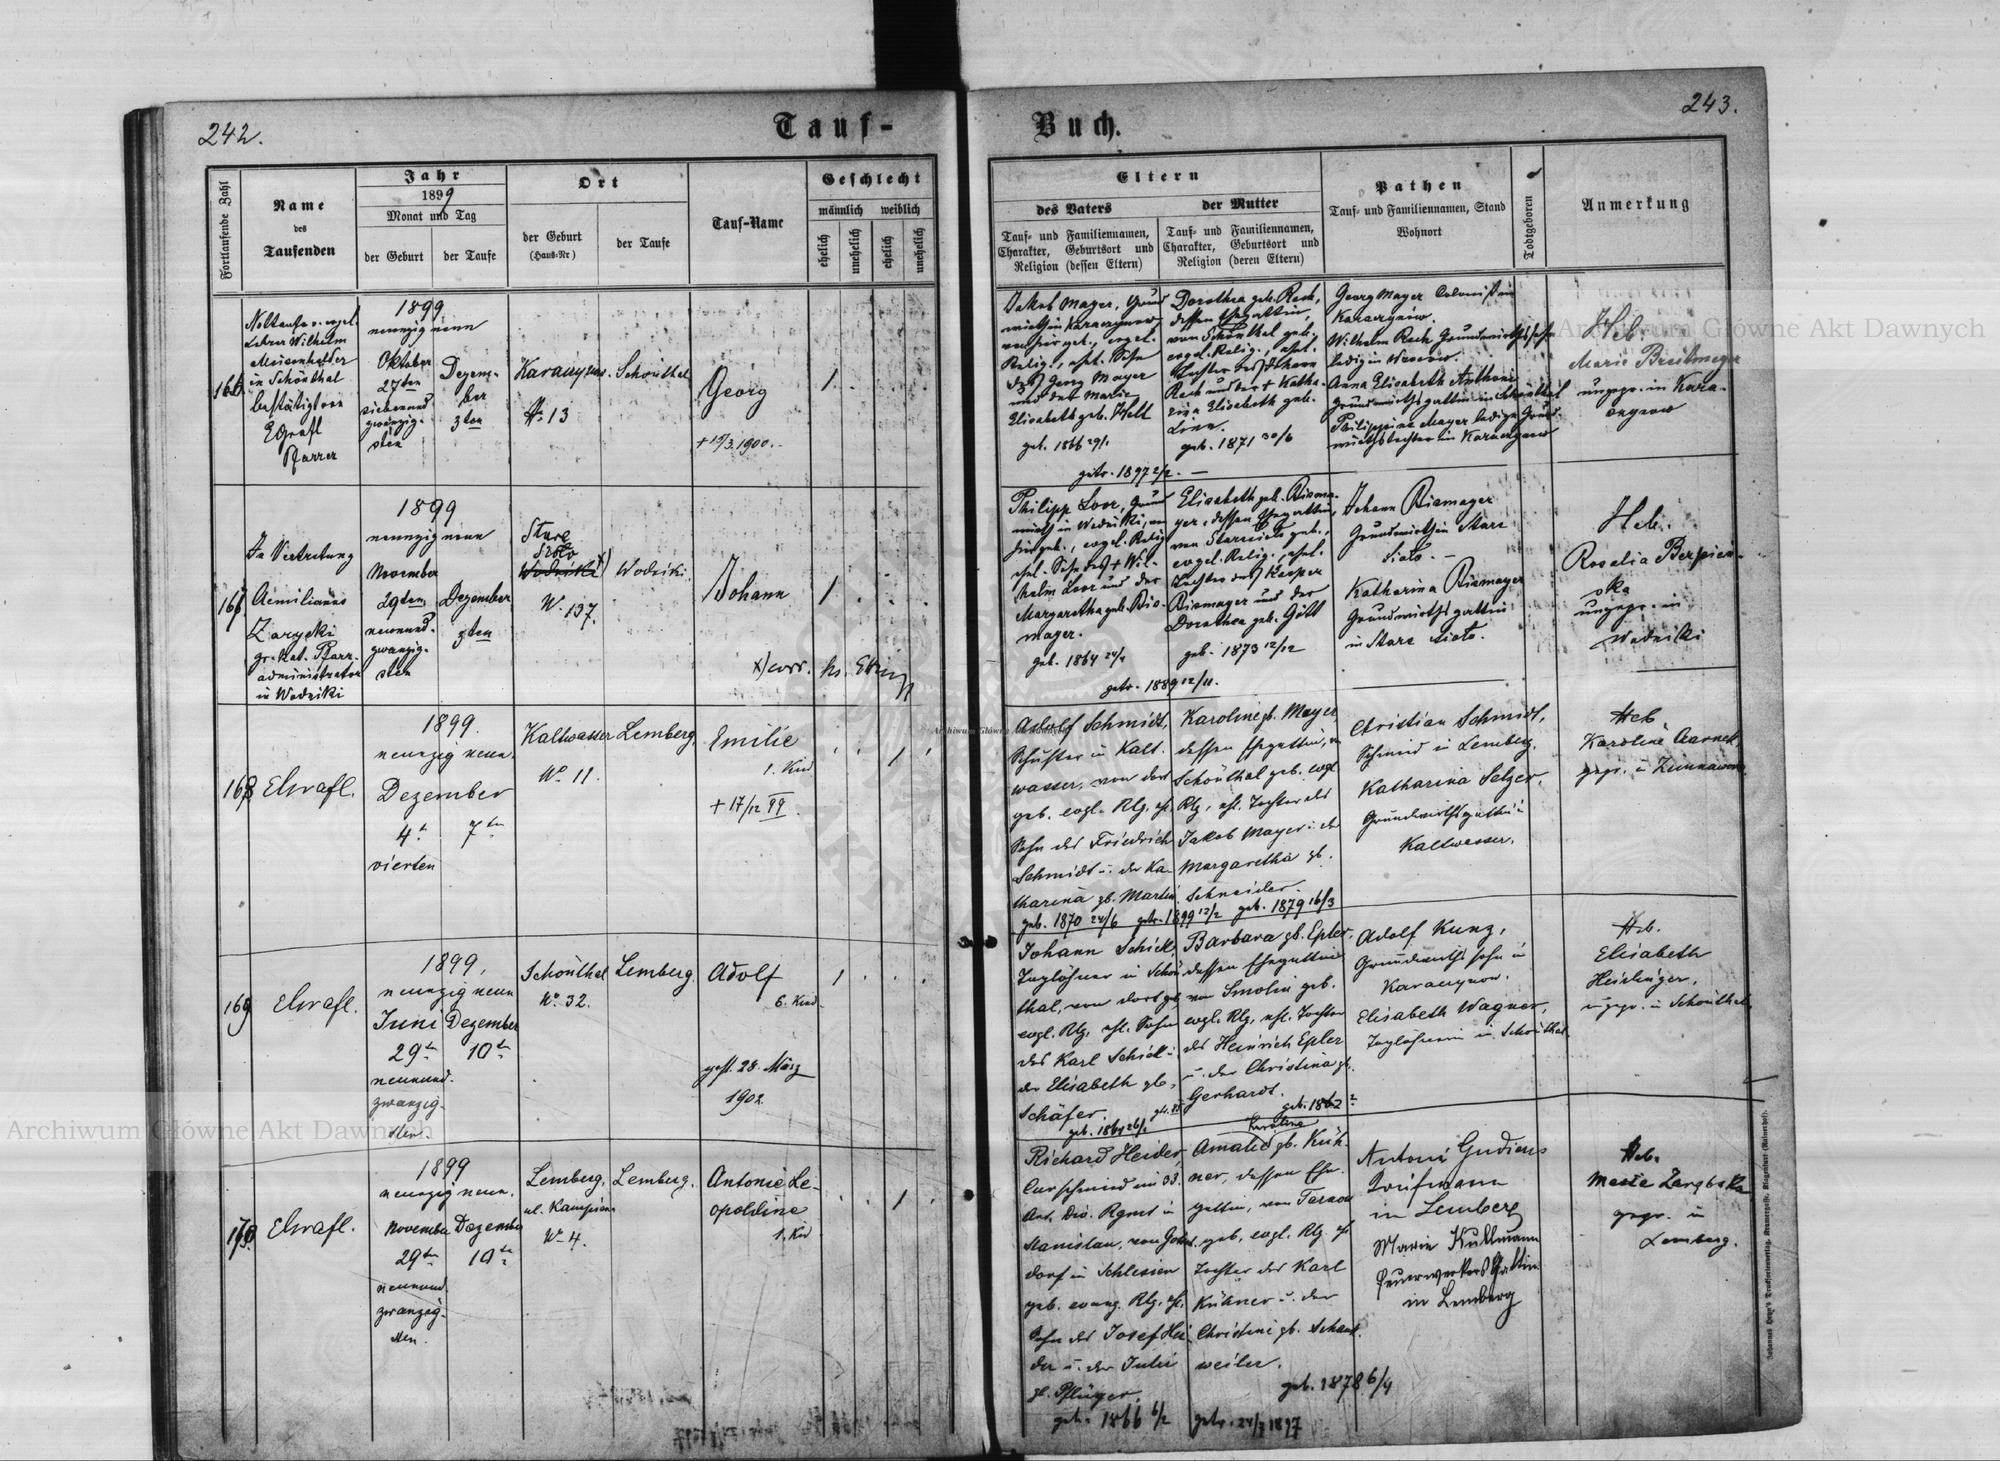 242.
Tauf-
Fortlaufende Zahl
Name
des
Taufenden
Jahr
1899
Monat und Tag
der Geburt
der Taufe
Ort
der Geburt
(Haus-Nr)
der Taufe
Tauf-Name
Geschlecht
männlich
weiblich
ehelich
unehelich
ehelich
unehelich
166
Nottaufe v. evgel.
Lehrer Wilhelm
in Schönthal
bestätigt von
Pfarrer
1899
neunzig neun
Oktober
27ten
siebenund
zwanzig-
sten
Dezem-
ber
3ten
Schönthal
Nr 13
Georg
+ 19/3. 1900.
1
167
In Vertretung
Aemilianus
Zarycki
gr. kat. Pfarr-
administrator
in Wodniki
1899
neunzig neun
November
29ten
neunund-
zwanzig-
sten
Dezember
3ten
Stare
Siolo
Wodniki x)
Nr. 137.
Wodniki
Johann
x) corr.
1
168
1899.
neunzig neun.
Dezember
4t
7ten
vierten
Kaltwasser
Nr 11.
Lemberg.
Emilie
1. Kind
+ 17/12 99
1
169
1899.
neunzig neun
Juni
Dezember
29ten
10ten
neunund-
zwanzig-
sten.
Schönthal
Nr. 32.
Lemberg.
Adolf
6. Kind.
gest. 28. März
1902.
1
170.
1899
neunzig neun.
November
Dezember
29ten
10ten
neunund-
zwanzig-
sten.
Lemberg,
ul. Kampiana
Nr 4.
Lemberg.
Antonie Le-
opoldine
1. Kind
1
243.
Buch.
Eltern
des Vaters
der Mutter
Tauf- und Familiennamen,
Charakter, Geburtsort und
Religion (dessen Eltern)
Tauf- und Familiennamen,
Charakter, Geburtsort und
Religion (deren Eltern)
Pathen
Tauf- und Familiennamen, Stand
Wohnort
Todtgeboren
Anmerkung
Jakob Mayer, Grund
evgel.
Relig., ehel. Sohn
des Georg Mayer
und der Marie
Elisabeth geb.
geb. 1866 29/1
Dorothea geb. Rech,
dessen Ehegattin,
von Schönthal geb.
evgel. Relig., ehel.
Tochter des Johann
Rech und der + Katha-
rina Elisabeth geb.
Linn.
geb. 1871 30/6
getr. 1897 2/2. —
Georg Mayer Colonist in
Wilhelm Rech Grundwirthssohn
ledig in
Anna Elisabeth Anthoni
Grundwirthsgattin in Schönthal
Philippine Mayer ledige Grund-
wirthstochter in
Heb.
Marie Breitmayer
ungepr. in Kara-
Philipp Loor, Grund
wirth in Wodniki, von
hier geb., evgel. Relig.
ehel. Sohn des + Wil-
helm Loor und der
Margaretha geb. Ris-
mayer.
geb. 1864
Elisabeth geb. Risma-
yer, dessen Ehegattin,
von Staresiolo geb.,
evgel. Relig., ehel.
Tochter des Kasper
Rismayer und der
Dorothea geb. Gött
geb. 1873 12/12
getr. 1889 12/11.
Johann Rismayer
Grundwirth in Stare
Siolo. —
Katharina Rismayer
Grundwirthsgattin
in Stare Siolo.
Heb.
Rosalia
ska
ungepr. in
Wodniki
Adolf Schmidt,
Schuster in Kalt-
wasser, von dort
geb. evgl. Rlg. ehl.
Sohn des Friedrich
Schmidt u. der Ka-
tharina gb. Martin.
geb. 1870 24/6
getr. 1899 12/2
Karoline gb. Mayer
dessen Ehegattin, von
Schönthal geb. evgl.
Rlg., ehl. Tochter des
Jakob Mayer u. der
Margaretha gb.
Schneider.
geb. 1879 16/3
Christian Schmidt,
Schmied in Lemberg,
Katharina Selzer,
Grundwirthsgattin in
Kaltwasser.
Heb.
Karoline Czarnek,
gepr. in
Johann Schick,
Taglöhner in Schön-
thal, von dort geb.
evgl. Rlg. ehl. Sohn
des Karl Schick u.
der Elisabeth gb.
Schäfer.
Barbara gb. Epler
dessen Ehegattin
von Smolin geb.
evgl. Rlg., ehl. Tochter
des Heinrich Epler
u. der Christina gb.
Gerhardt.
geb. 1862
Adolf Kunz,
Grundwirthssohn in
Elisabeth Wagner,
Taglöhnerin in Schönthal
Heb.
Elisabeth
Heidinger,
ungepr. in Schönthal
Richard Heider
Curschmied im 33.
Art. Div. Rgmt in
Stanislau, von
dorf in Schlesien
geb. evang. Rlg. ehl.
Sohn des Josef Hei-
der u. der Julie
gb. Pflüger.
geb. 1866 6/2
Karoline
Amalie gb. Küh-
ner, dessen Ehe-
gattin, von
geb. evgl. Rlg. ehl.
Tochter des Karl
Kühner u. der
Christine gb. Schant-
weiler.
geb. 1878 6/4
getr. 24/7 1897
Antoni Gudiens
Kaufmann
in Lemberg
Marie Kullmann
Feuerwerkers Gattin
in Lemberg
Heb.
gepr. in
Lemberg.
Archiwum Główne Akt Dawnych
Archiwum Główne Akt Dawnych
Archiwum Główne Akt Dawnych